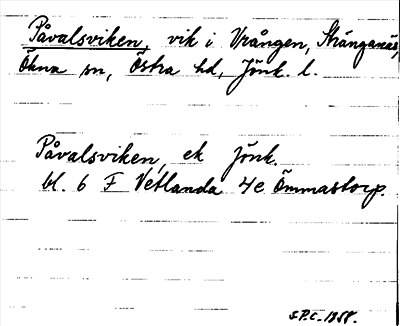 Påvalsviken, vik i Vrången, Skänganäs,
Ökna sn, Östra hd, Jönk. l.
Påvalsviken, ek Jönk.
bl. 6 F Vetlanda 4e Ömmastorp.
S.P.C. 1958.